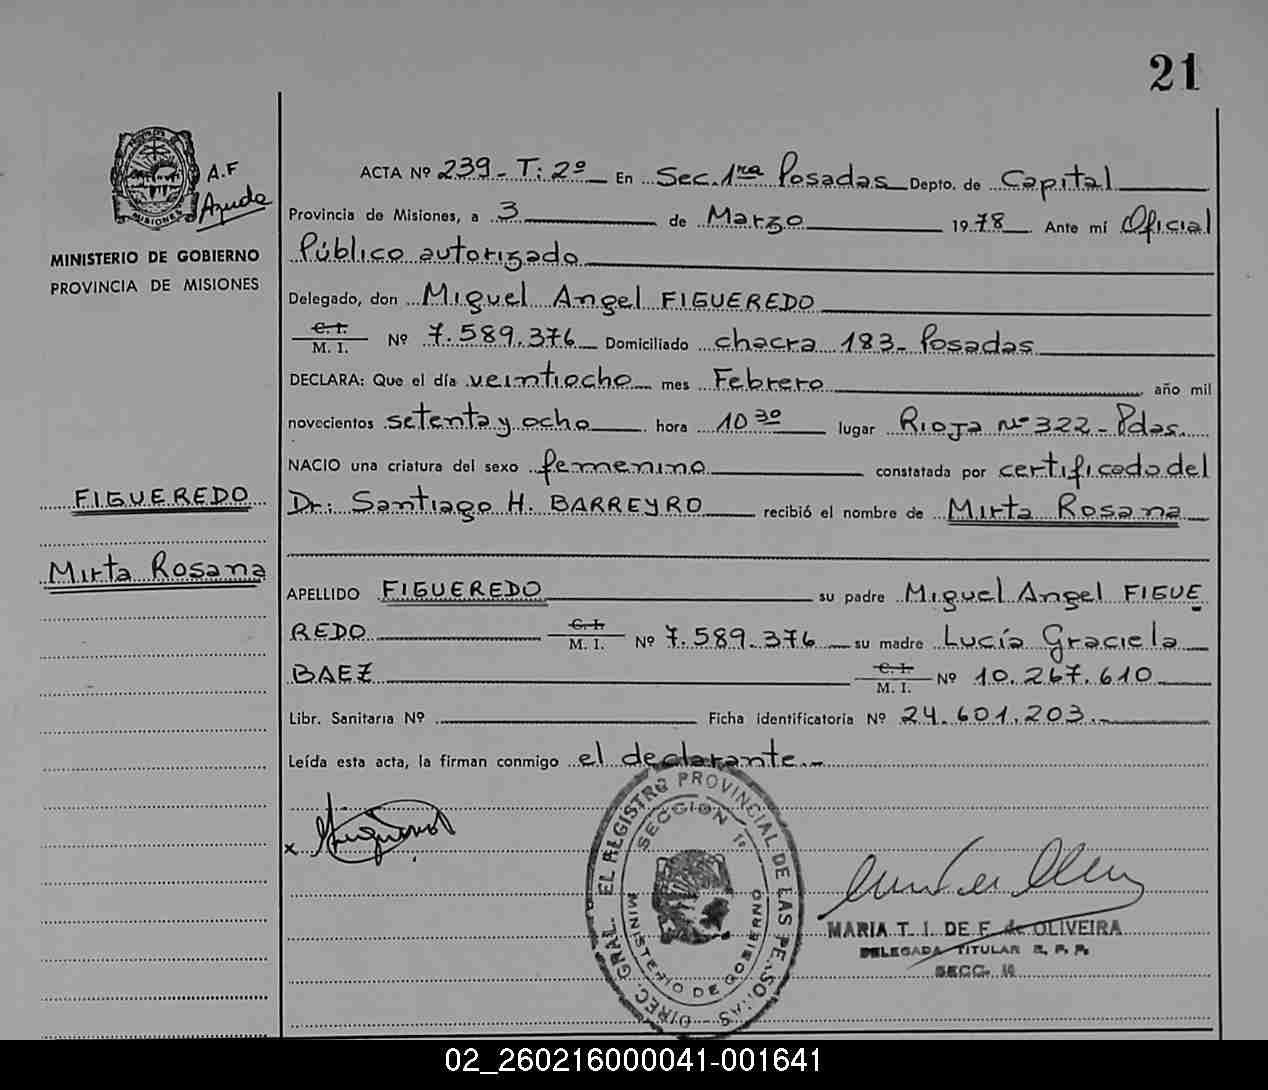 21
A.F
Ayuda
MISIONES
MINISTERIO DE GOBIERNO
PROVINCIA DE MISIONES
FIGUEREDO
Mirta Rosana
ACTA Nº 239 - T: 2º En Sec. 1ra Posadas Depto. de Capital
Provincia de Misiones, a 3 de Marzo 1978 Ante mí Oficial
Público autorizado
Delegado, don Miguel Angel FIGUEREDO
C. I. M. I. Nº 7.589.376 Domiciliado chacra 183 - Posadas
DECLARA: Que el día veintiocho mes Febrero año mil
novecientos setenta y ocho hora 10 30 lugar Rioja Nº 322 - Pdas.
NACIO una criatura del sexo femenino constatada por certificado del
Dr: Santiago H. BARREYRO recibió el nombre de Mirta Rosana
APELLIDO FIGUEREDO su padre Miguel Angel FIGUE
REDO C. I. M. I. Nº 7.589.376 su madre Lucía Graciela
BAEZ C. I. M. I. Nº 10.267.610
Libr. Sanitaria Nº Ficha identificatoria Nº 24.601.203.
Leída esta acta, la firman conmigo el declarante.-
x
DIREC. GRAL. EL REGISTRO PROVINCIAL DE LAS PERSONAS
SECCION 1º
MINISTERIO DE GOBIERNO
MARIA T. I. DE F. de OLIVEIRA
DELEGADA TITULAR R. P. P.
SECC. 1ª
02_260216000041-001641